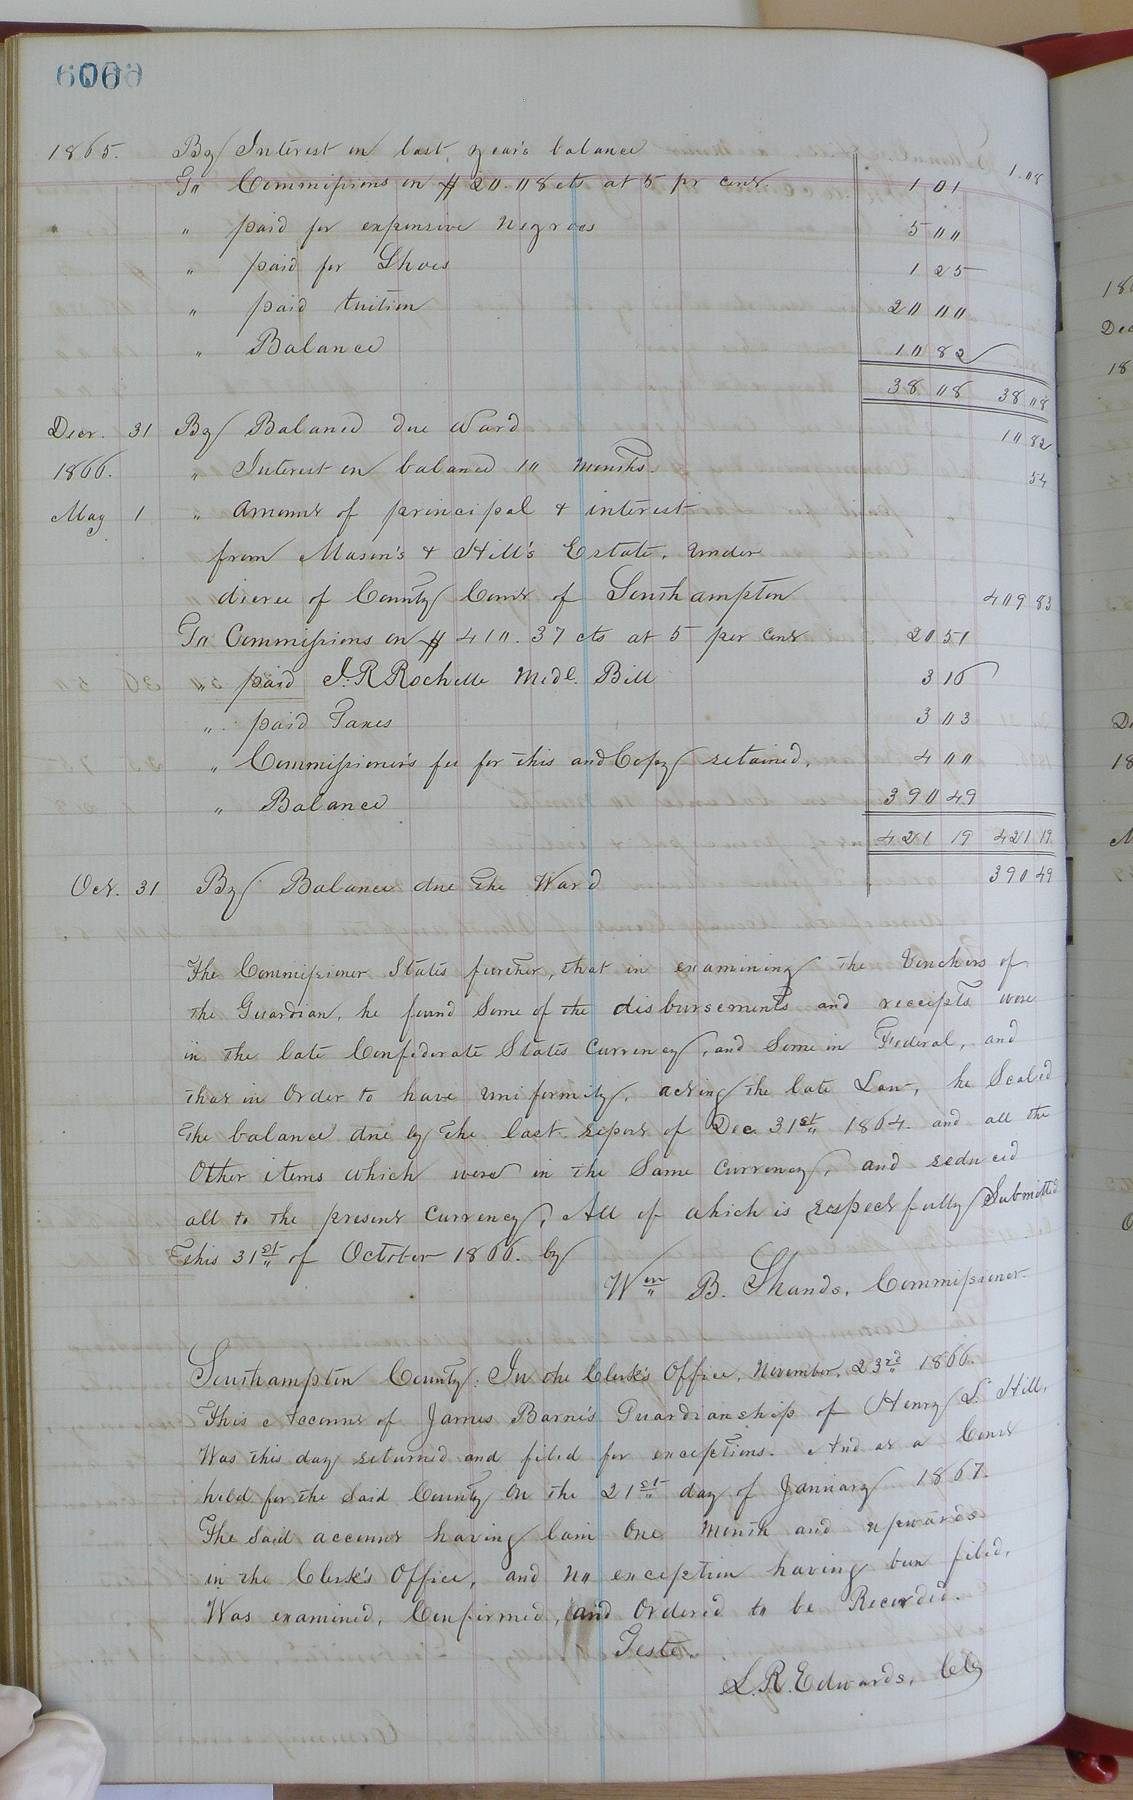 606
1865. By Interest on last year's balance 1.08
To Commissions on $20.08 cts at 5 pr cent. 1 01
" paid for expensive negroes 5 00
" paid for Shoes 1 25
" paid tuition 20 00
" Balance 10 82
38 08 38 08
Decr. 31 By Balance due Ward 10 82
1866. " Interest on balance 10 months. 54
May 1 " amount of principal & interest
from Mason's & Hill's Estate, under
decree of County Court of Southampton 409 83
To Commissions on $410.37 cts at 5 per cent 20 51
" paid J. R Rochelle Medl. Bill 3 16
" paid Taxes 3 03
" Commissioner's fee for this and Copy retained, 4 00
" Balance 390 49
421 19 421 19
Oct. 31 By Balance due the Ward 390 49
The Commissioner States further, that in examining the Vouchers of
the Guardian, he found Some of the disbursements and receipts were
in the late Confederate States Currency, and Some in Federal, and
that in Order to have Uniformity, acting the late Law, he Scaled
the balance due by the last report of Dec 31st 1864. and all the
Other items which were in the Same Currency, and reduced
all to the present Currency, All of which is respectfully Submitted
This 31st of October 1866. by
Wm B. Shands, Commissioner
Southampton County: In the Clerk's Office, November, 23rd 1866.
This Account of James Barne's Guardianship of Henry L. Hill,
Was this day returned and filed for exceptions. And at a Court
held for the Said County On the 21st day of January 1867.
The Said account having lain One Month and upwards
in the Clerk's Office, and no exception having been filed,
Was examined, Confirmed, and Ordered to be Recorded.
Teste.
L. R. Edwards, Clk